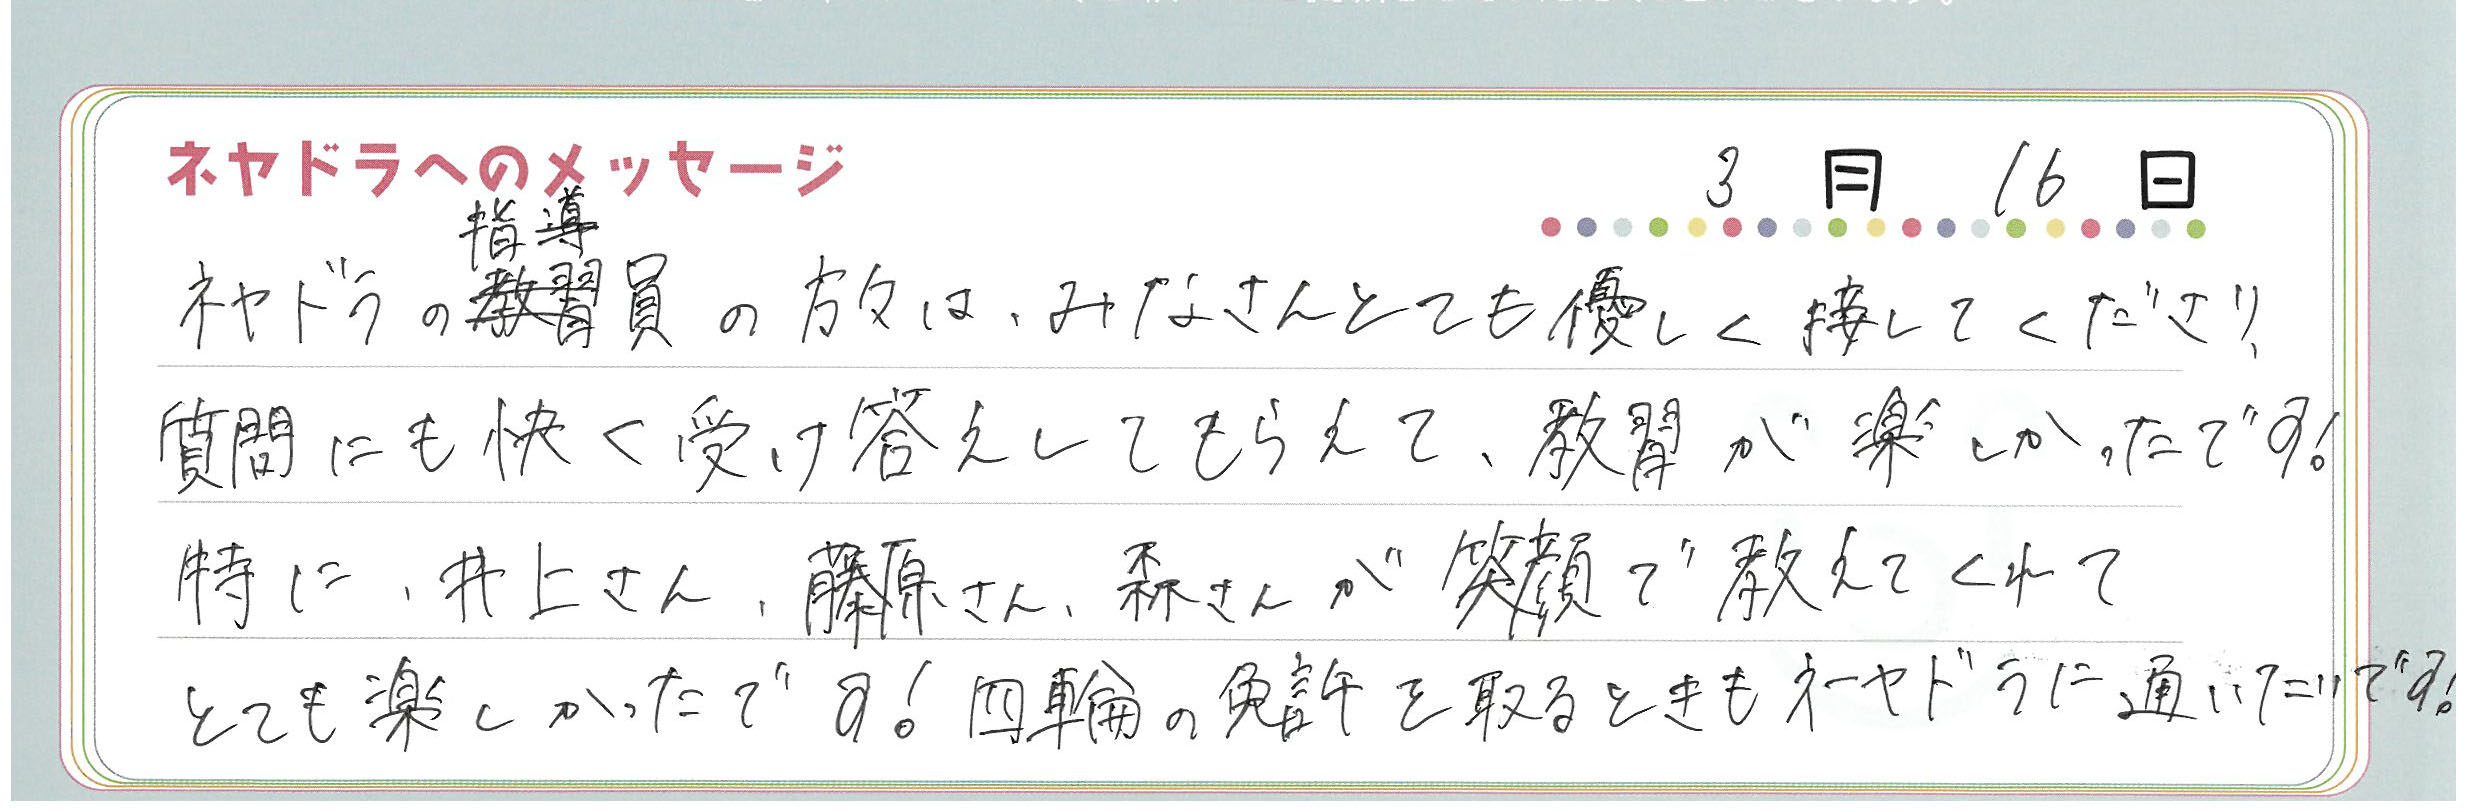 ネヤドラへのメッセージ
3月16日
指導
ネヤドラの教習員の方々は、みなさんとても優しく接してくださり、
質問にも快く受け答えしてもらえて、教習が楽しかったです!
特に、井上さん、藤原さん、森さんが笑顔で教えてくれて
とても楽しかったです!四輪の免許を取るときもネヤドラに通いたいです!